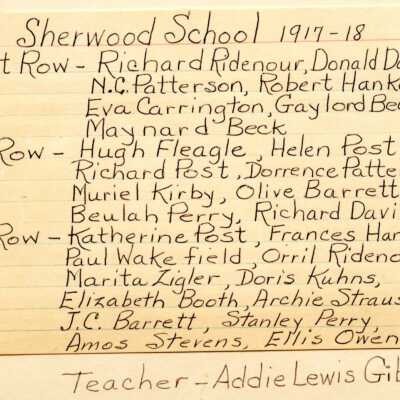 Sherwood School 1917-18
t Row - Richard Ridenour, Donald Da
N.C. Patterson, Robert Hank
Eva Carrington, Gaylord Bec
Maynard Beck
Row - Hugh Fleagle, Helen Post
Richard Post, Dorrence Patte
Muriel Kirby, Olive Barrett
Beulah Perry, Richard Davi
Row - Katherine Post, Frances Han
Paul Wakefield, Orril Rideno
Marita Zigler, Doris Kuhns,
Elizabeth Booth, Archie Straus
J.C. Barrett, Stanley Perry,
Amos Stevens, Ellis Owen
Teacher - Addie Lewis Gib